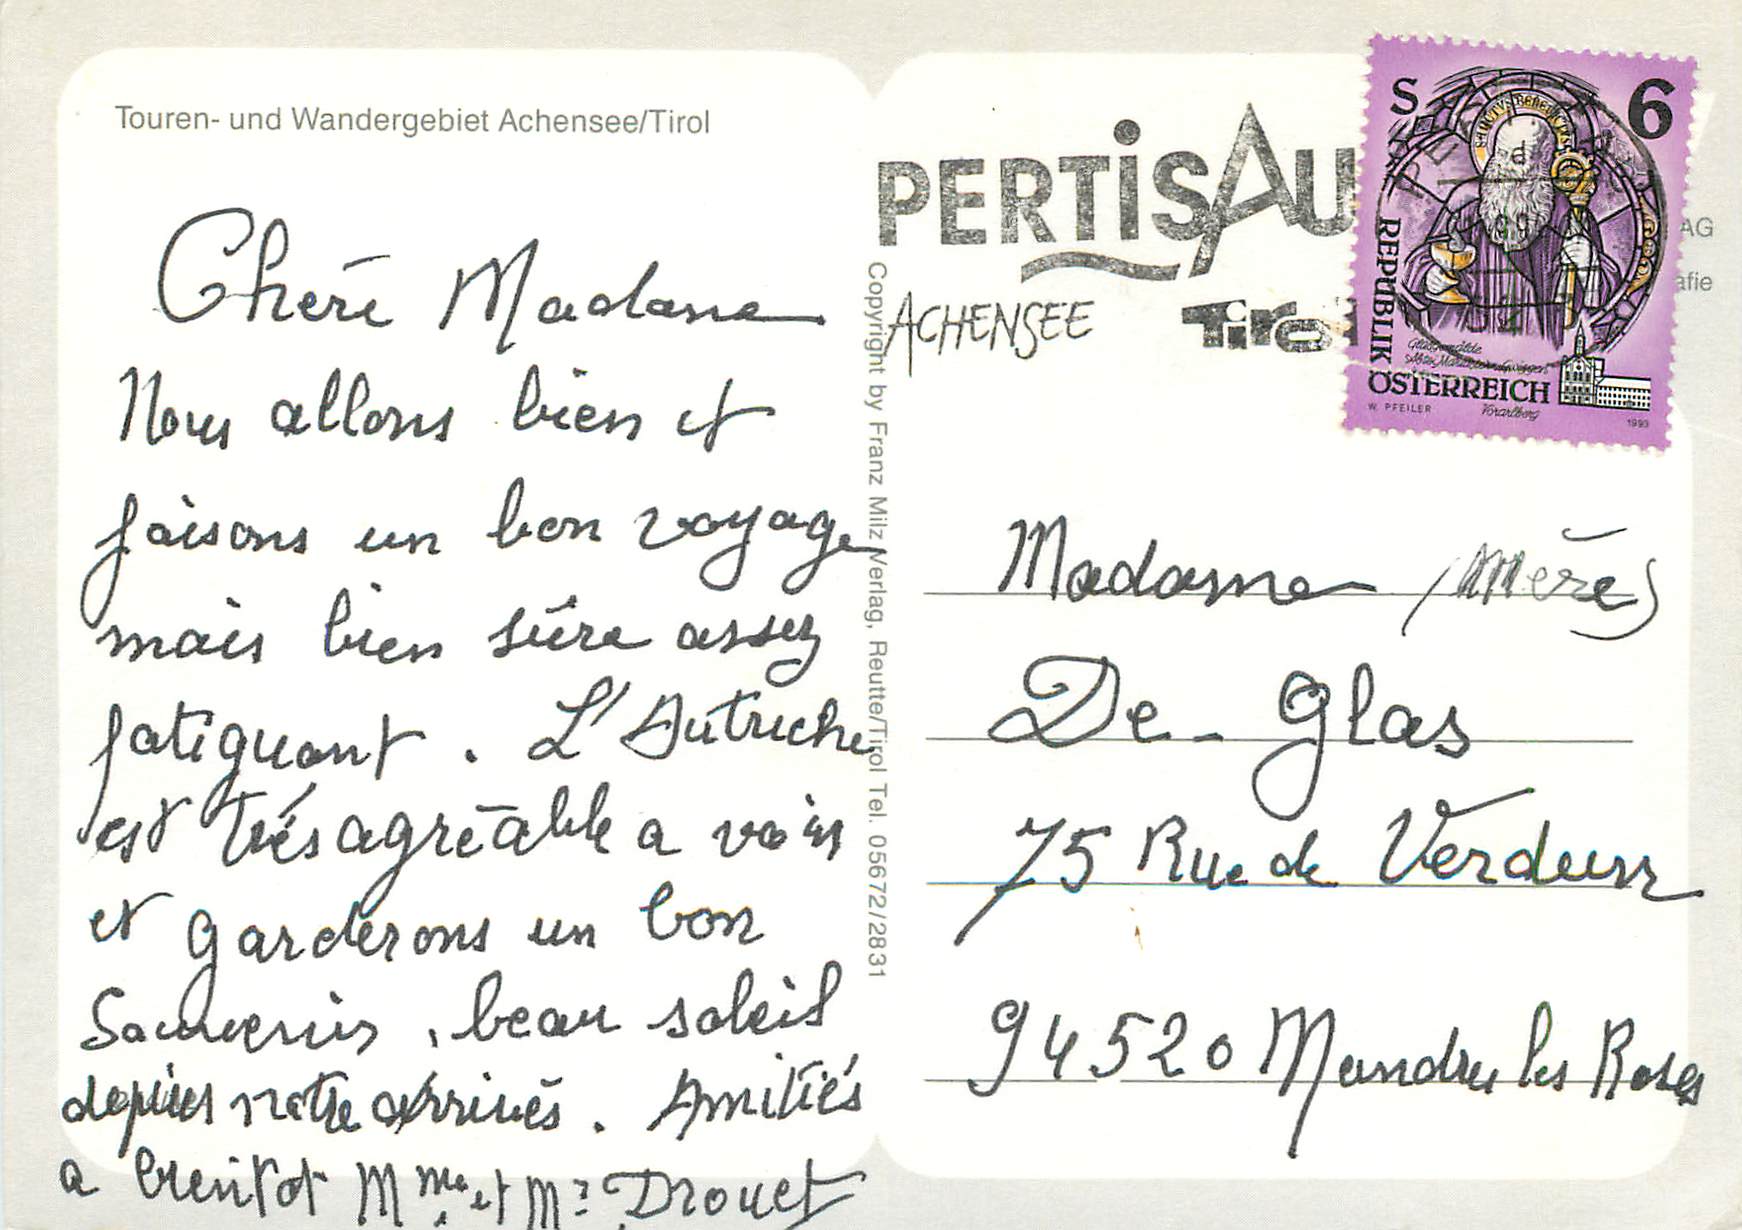 Touren- und Wandergebiet Achensee/Tirol
Chère Madame
Nous allons bien et
faisons un bon voyage
mais bien sûre assez
fatiguant. L'Autriche
est très agréable a voir
et garderons un bon
Souvenir, beau soleil
depuis notre arrivés. Amitiés
a bientot Mme et Mr Drouet
Copyright by Franz Milz Verlag, Reutte/Tirol Tel. 05672/2831
PERTISAU
ACHENSEE Tirol
S 6
SANCTVS BENEDICTVS
REPUBLIK
ÖSTERREICH
Glasgemälde
Vorarlberg
W. PFEILER
1993
AG
afie
Madame (Mère)
De-Glas
75 Rue de Verdun
94520 Mandres les Roses